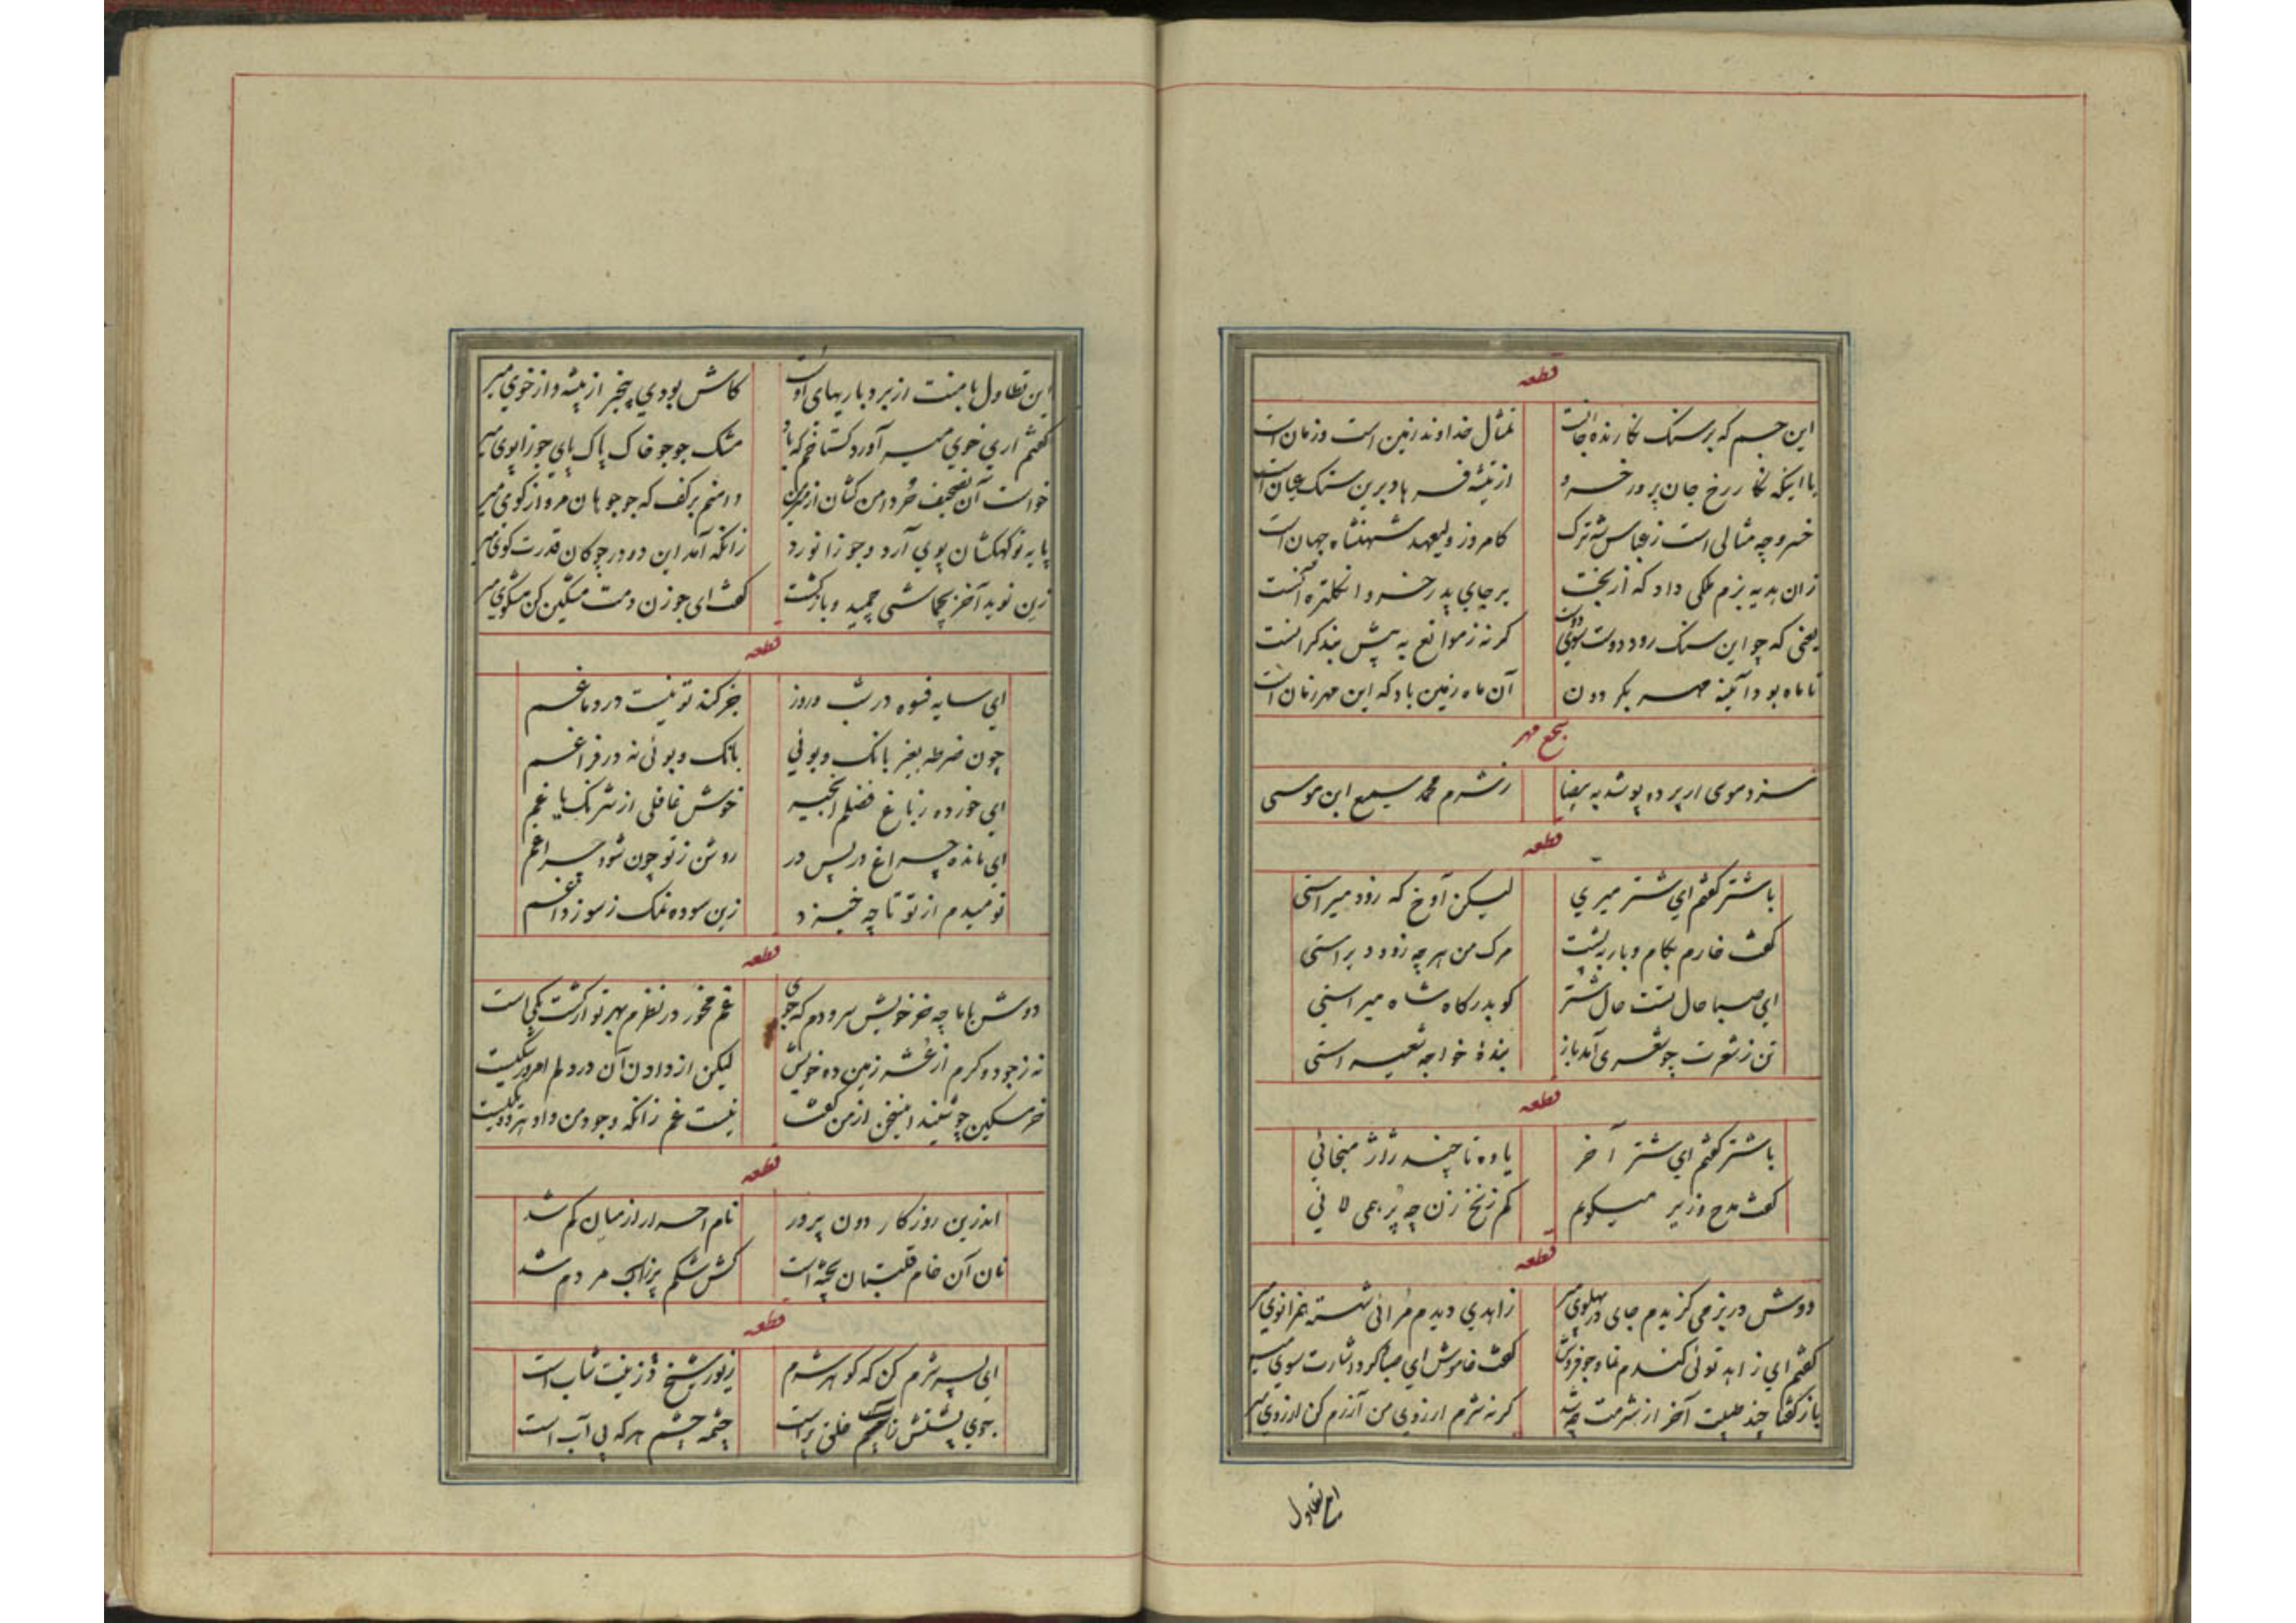 قطعه
این جسم که بر سنک نکارنده جانست تمثال خداوند زمین است و زمان است
با اینکه نکار رخ جان پرور خسرو از تیشه فرهاد برین سنک عیان است
خسرو چه مثالی است ز عباس شه ترک کامروز ولیعهد شهنشاه جهان است
زان هدیه بزم ملکی داد که از بخت بر جای پدر خسرو انکلتره آنست
یعنی که چو این سنک رود دوست سوی دوست کرنه ز موانع به پیش بند کرانست
تا ماه بود آینه مهر بکردون آن ماه زمین باد که این مهر زمان است
سجع مهر
سزد موسی ار پرده پوشد به بیضا ز شرم محمد سمیع ابن موسی
قطعه
با شتر کفتم ای شتر میری لیکن آوخ که زود میراستی
کفت خارم بکام و بار به پشت مرک من هر چه زود دیر استی
ای صبا حال تست حال شتر کو بدرکاه شاه میر استی
تن ز شعرت چو شعری آمد باز بندۀ خواجه شعیر استی
قطعه
با شتر کفتم ای شتر آخر یاوه تا چند ژاژ میخائی
کفت مدح وزیر میکویم کم زنخ زن چه پر همی لائی
قطعه
دوش در بزمی کزیدم جای در پهلوی میر زاهدی دیدم مرائی شسته همزانوی میر
کفتم ای زاهد توئی کندم نما و جو فروش کفت خاموش ای صبا کرد اشارت سوی میر
باز کفتا چند طیبت آخر از شرمت چه شد کرنه شرم ار زوی من آزرم کن از روی میر
این تطاول
این تطاول با منت از بردباریهای اوست کاش بودی بیخبر از پیشه و از خوی میر
کفتم اری خوی میر آورد کستاخم که باد مشک جو جو خاک پاک پای جوزا پوی میر
خواست آن تصحیف خر دامن کشان از بزم من دامنم بر کف که جو جو هان مرو از کوی میر
پایه تو کهکشان پوی آرد و جوزا نورد زانکه آمد این دو در چوکان قدرت کوی میر
زین نوید آخر بچماشی چمید و بازکشت کفت ای جو زن دمت مشکین کن مشکوی میر
قطعه
ای سایه فسوه در شب و روز جز کند تو نیست در دماغم
چون ضرطه بغیر بانک و بوئی بانک و بوئی نه در فراغم
ای خورده ز باغ فضلم انجیر خوش غافلی از شرنک باغم
ای مانده چراغ در پس در روشن ز تو چون شود چراغم
نومیدم از تو تا چه خیزد زین سوده نمک ز سوز داغم
قطعه
دوش با ماچه خر خویش سرودم که جوی غم مخور در نظرم بهر تو ار کشت یکی است
نه ز جود و کرم از غشه زمین ده خویش لیکن از دادن آن در دلم امروز شکیست
خر مسکین چو شنید این سخن از من کفت نیست غم زانکه وجود من و داو هر دو یکیست
قطعه
اندرین روزکار دون پرور نام احرار از میان کم شد
نان آن خام قلتبان پخته است کش شکم پر ز آب مردم شد
قطعه
ای پسر شرم کن که کوهر شرم زیور شیخ و زینت شاب است
سوی پستش تا چشم خلق پر است چشمه چشم هر که بی آب است